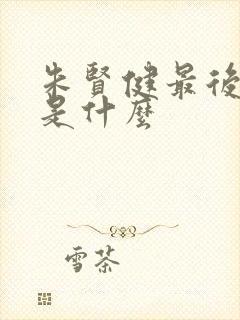 朱賢健最後
是什麼
雪茶